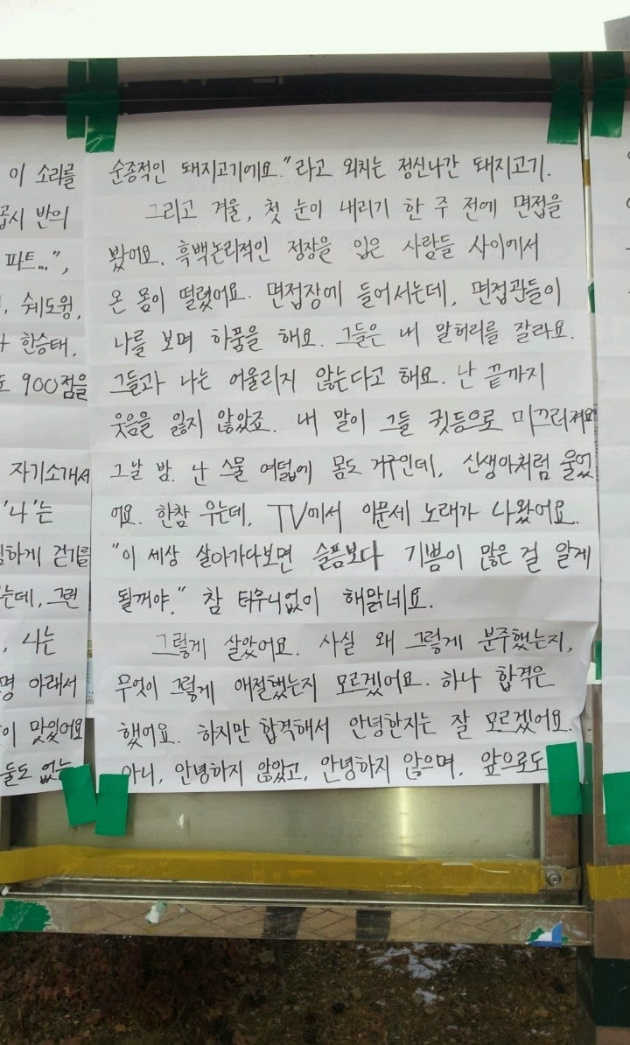 이 소리를
곱시 반의
파트...",
, 쉐도윙,
한승태,
900점을
자기소개서
'나'는
하게 걷기를
는데, 그런
, 나는
명 아래서
이 맛있어요
들도 없는
순종적인 돼지고기에요." 라고 외치는 정신나간 돼지고기.
그리고 겨울, 첫 눈이 내리기 한 주 전에 면접을
봤어요. 흑백논리적인 정장을 입은 사람들 사이에서
온 몸이 떨렸어요. 면접장에 들어서는데, 면접관들이
나를 보며 하품을 해요. 그들은 내 말허리를 잘라요.
그들과 나는 어울리지 않는다고 해요. 난 끝까지
웃음을 잃지 않았죠. 내 말이 그들 귓등으로 미끄러져요
그날 밤. 난 스물 여덟에 몸도 거구인데, 신생아처럼 울었
어요. 한참 우는데, TV에서 이문세 노래가 나왔어요.
"이 세상 살아가다보면 슬픔보다 기쁨이 많은 걸 알게
될꺼야." 참 터무니없이 해맑네요.
그렇게 살았어요. 사실 왜 그렇게 분주했는지,
무엇이 그렇게 애절했는지 모르겠어요. 하나 합격은
했어요. 하지만 합격해서 안녕한지는 잘 모르겠어요.
아니, 안녕하지 않았고, 안녕하지 않으며, 앞으로도